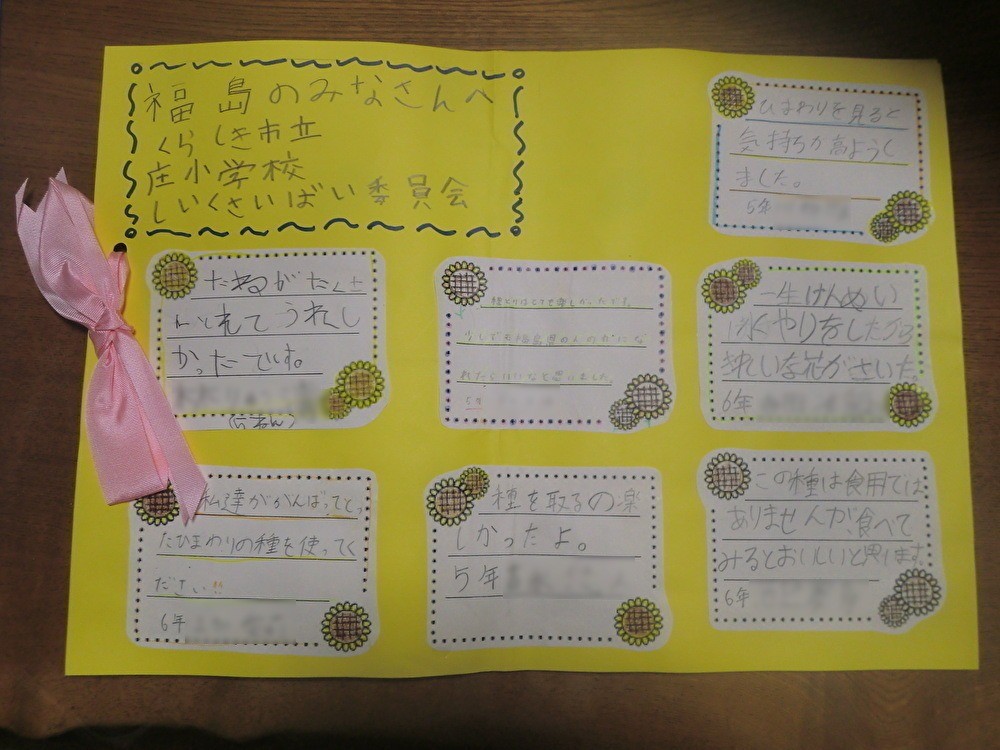 福島のみなさんへ
くらしき市立
庄小学校
しいくさいばい委員会
ひまわりを見ると
気持ちが高ようし
ました。
5年
たねがたくさ
んとれてうれし
かったです。
(5ねん)
種とりはとても楽しかったです。
少しでも福島県の人の力にな
れたらいいなと思いました。
5年
一生けんめい
水やりをしたから
きれいな花がさいた。
6年
私達ががんばってとっ
たひまわりの種を使ってく
ださい!!
6年
種を取るの楽
しかったよ。
5年
この種は食用では
ありませんが、食べて
みるとおいしいと思います。
6年